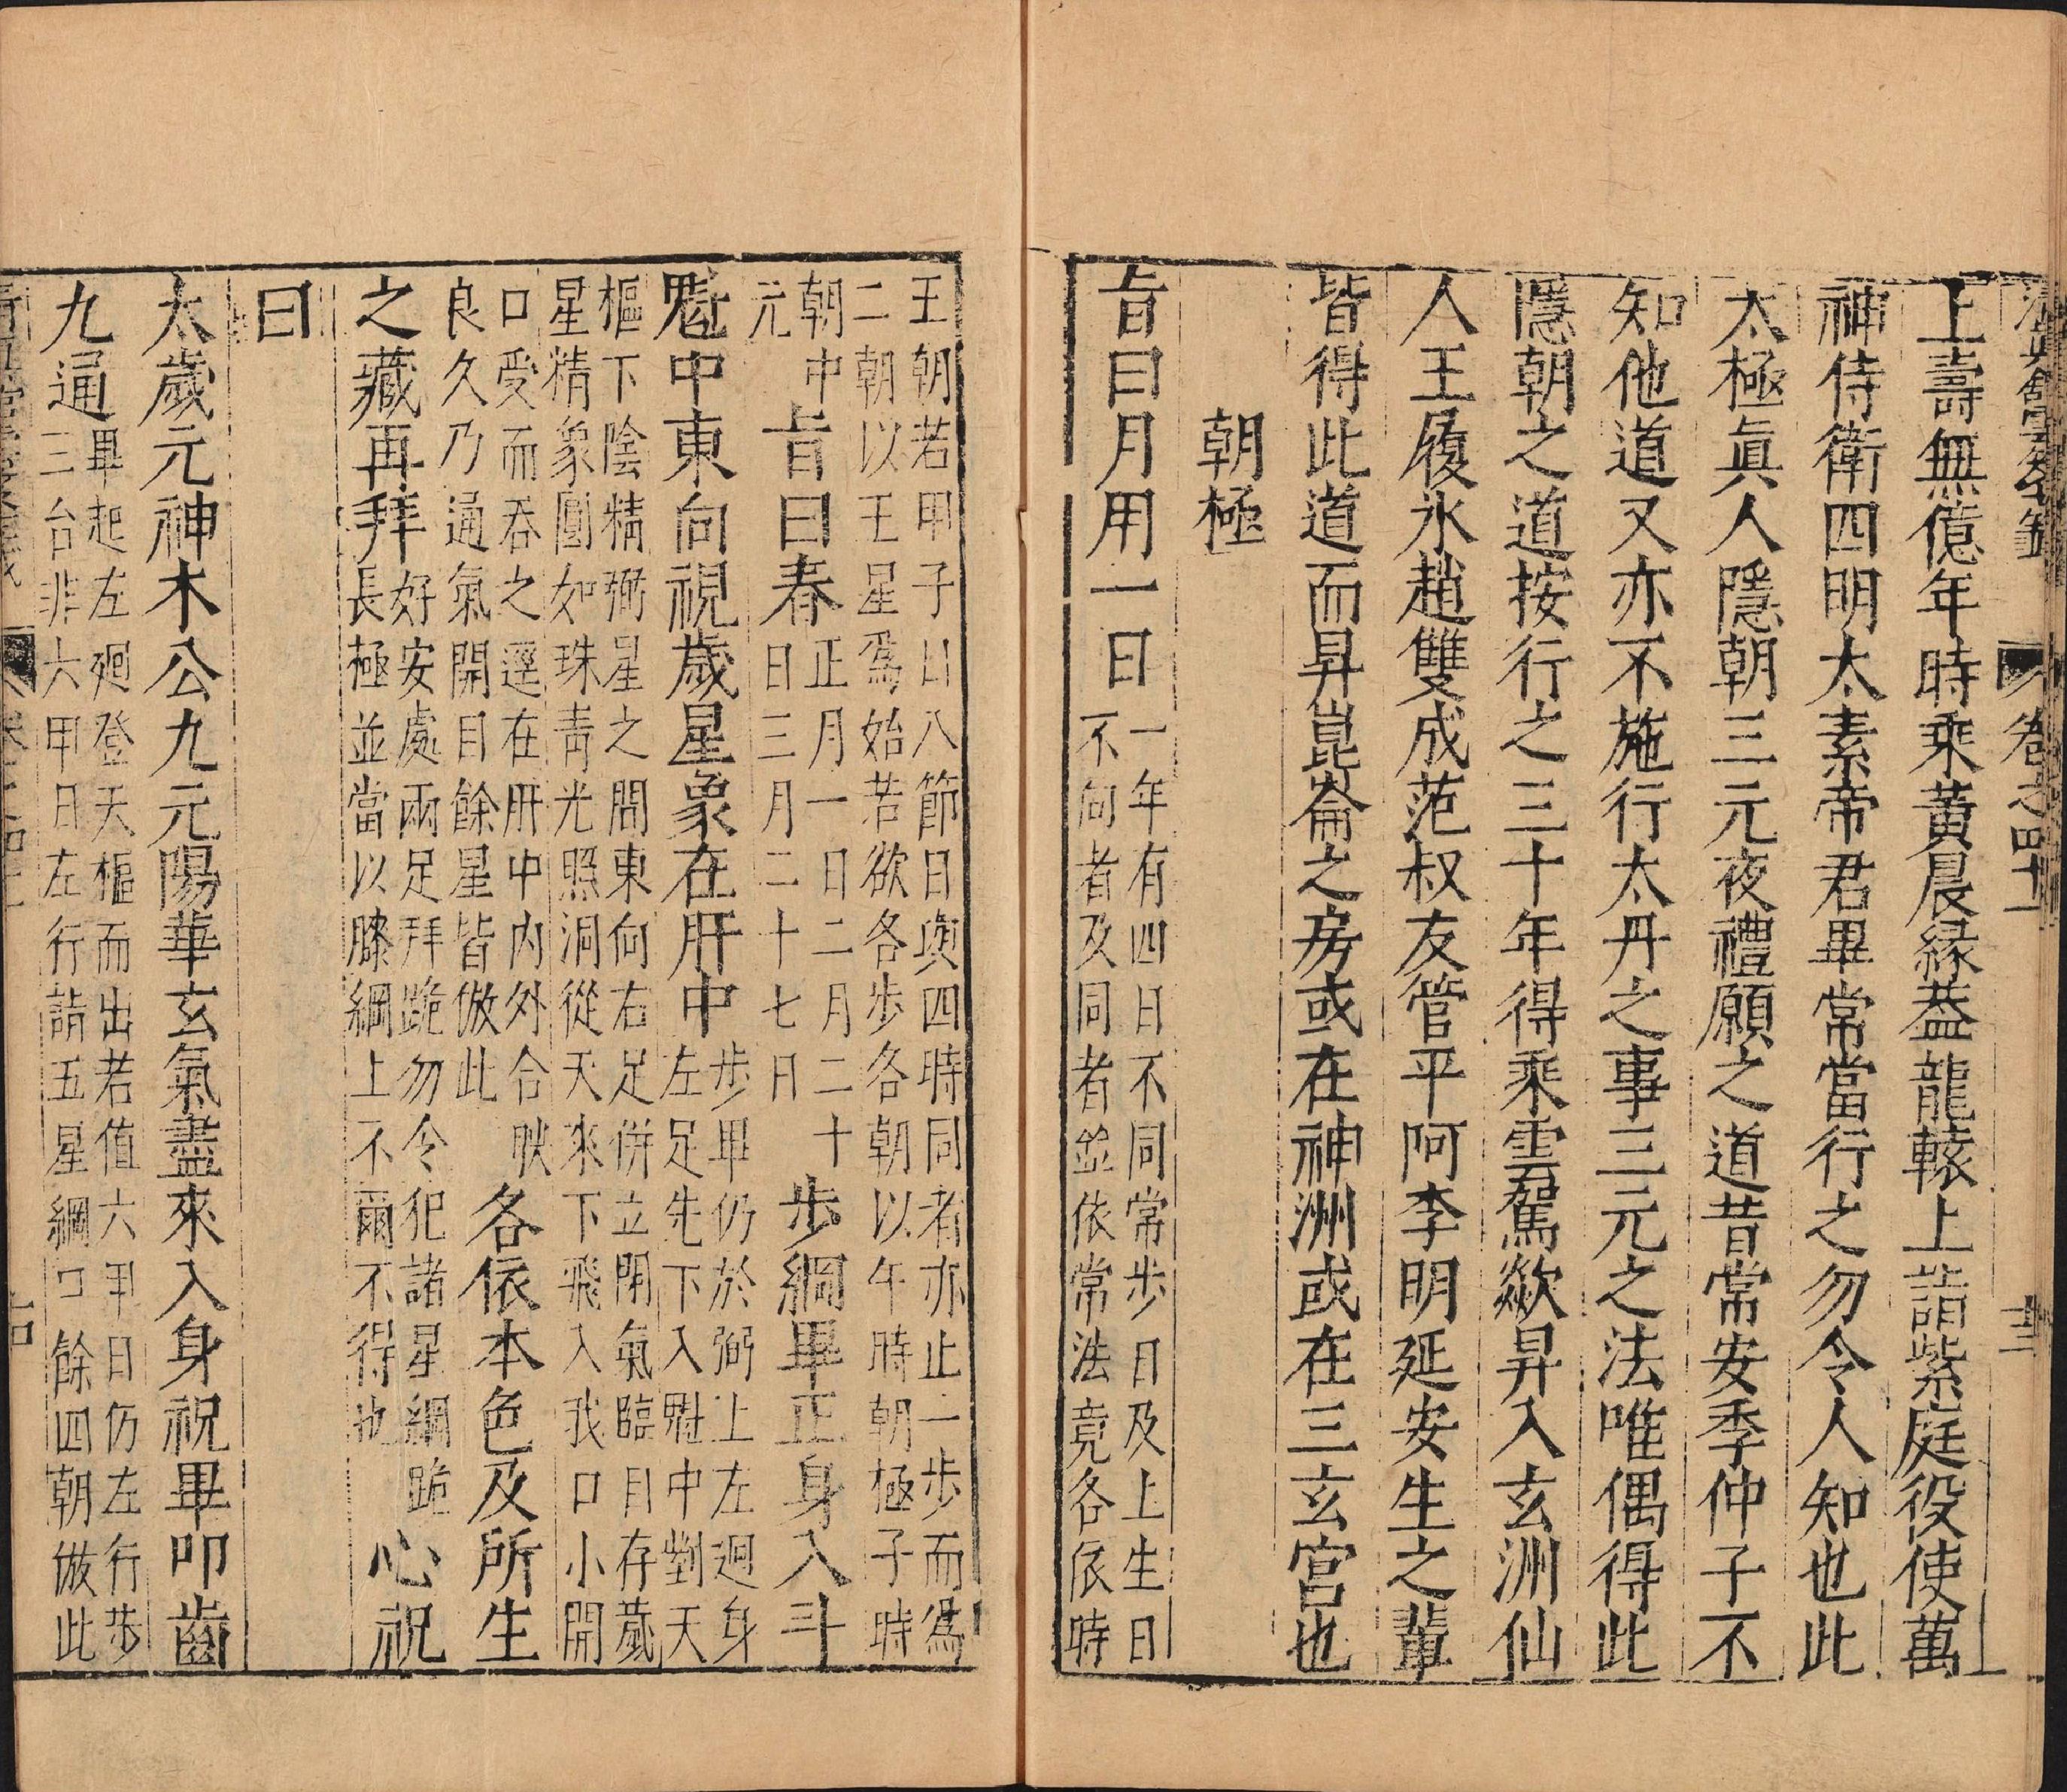 卷之四十二
十三
上壽無億年時乘黃晨緑蓋龍轅上詣紫庭役使萬
神侍衛四明太素帝君畢常當行之勿令人知也此
太極眞人隱朝三元夜禮願之道昔常安季仲子不
知他道又亦不施行太丹之事三元之法唯偶得此
隱朝之道按行之三十年得乘雲駕欻昇入玄洲仙
人王履氷趙雙成范叔友管平阿李明延安生之輩
皆得此道而昇崑崙之房或在神洲或在三玄宮也
朝極
㫖曰月用一日
一年有四日不同常步日及上生日
不向者及同者並依常法竟各依時
王朝若甲子日八節日與四時同者亦止一步而爲
二朝以王星爲始若欲各步各朝以午時朝極子時
朝中
元
㫖曰春
正月一日二月二十
日三月二十七日
步綱畢正身入斗
魁中東向視歲星象在肝中
步畢仍於弼上左迴身
左足先下入魁中劄天
樞下陰精弼星之間東向右足併立閉氣臨目存歲
星精象圓如珠青光照洞從天來下飛入我口小開
口受而吞之逕在肝中内外合映
良久乃通氣開目餘星皆倣此
各依本色及所生
之藏再拜
好安處兩足拜跪勿令犯諸星綱跪
長極並當以膝綱上不爾不得也
心祝
曰
太歲元神木公九元陽華玄氣盡來入身祝畢叩齒
九通
畢起左廻登天樞而出若值六甲日仍左行步
三台非六甲日左行詣五星綱口餘四朝倣此